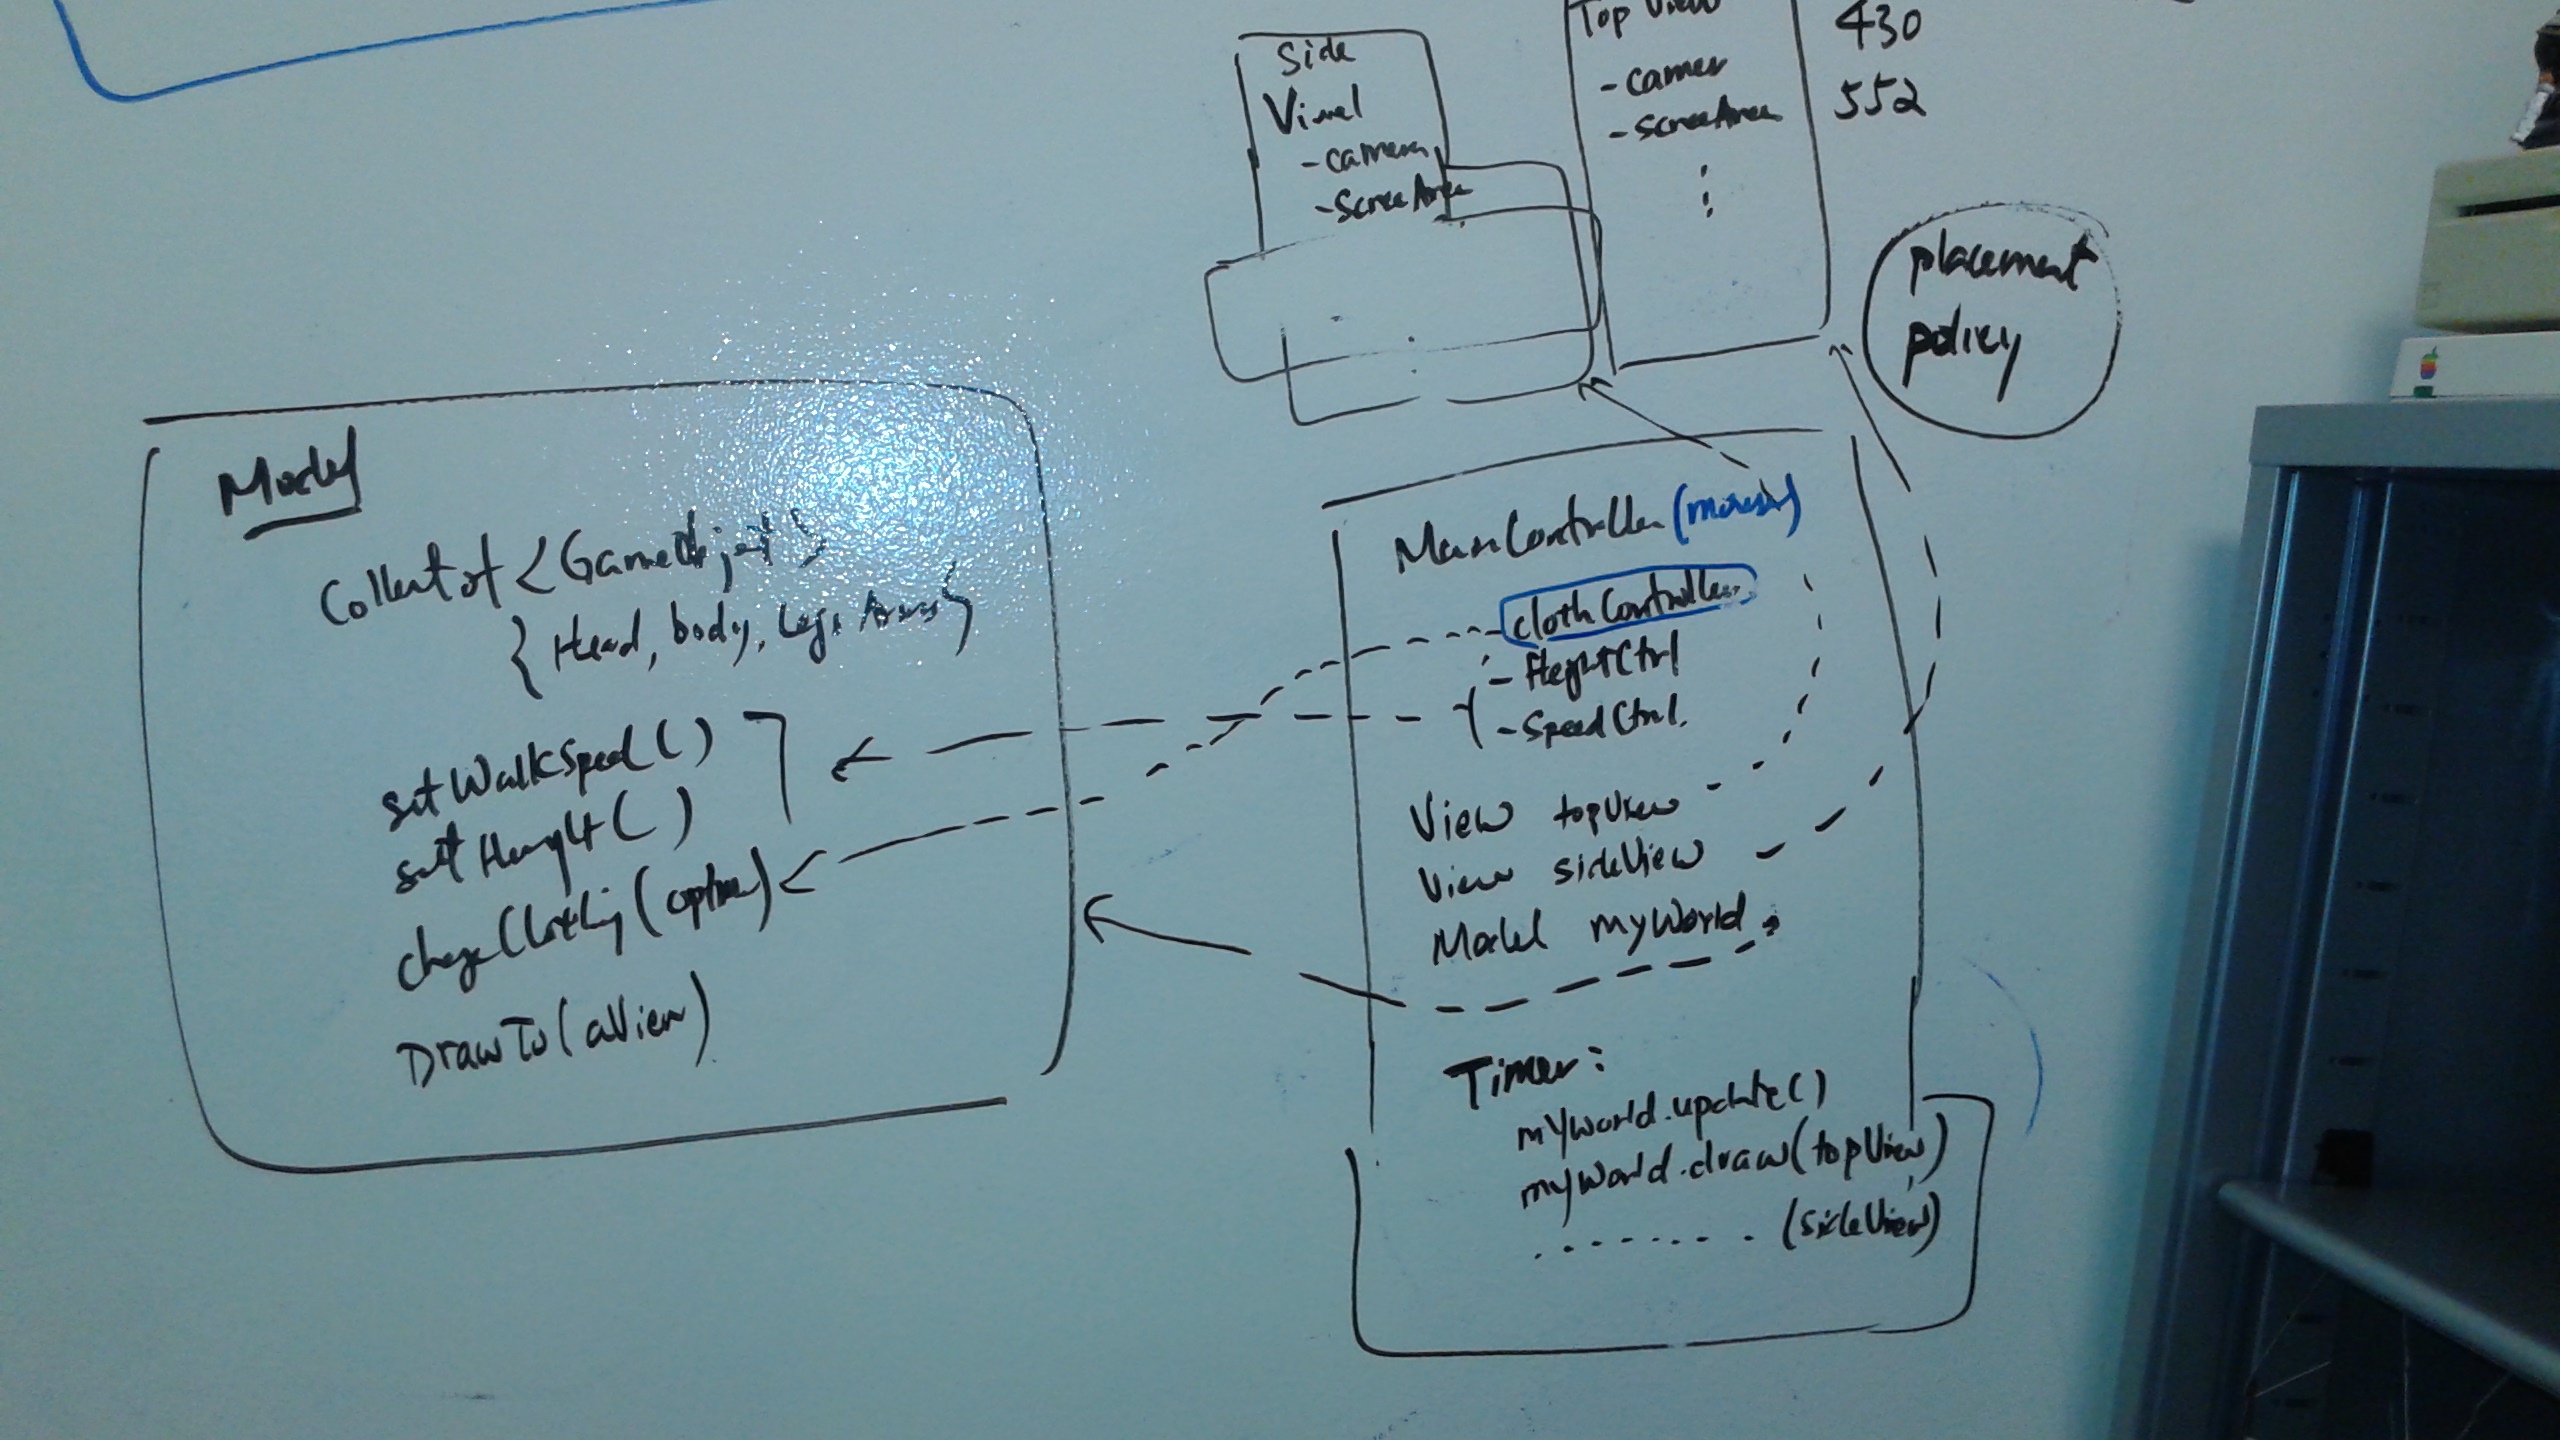 Side
View
-camera
-ScreeArea
Top View
-camer
-ScreeArea
430
552
placement
policy
Model
Collect of <GameObject>
{Head, body, Legs Arms}
setWalkSpeed()
setHeight()
changeClothing(option)
DrawTo(aView)
MainController
clothController
-HeightCtrl
-SpeedCtrl.
View topView
View sideView
Model myWorld
Timer:
myWorld.update()
myWorld.draw(topView)
........ (sideView)